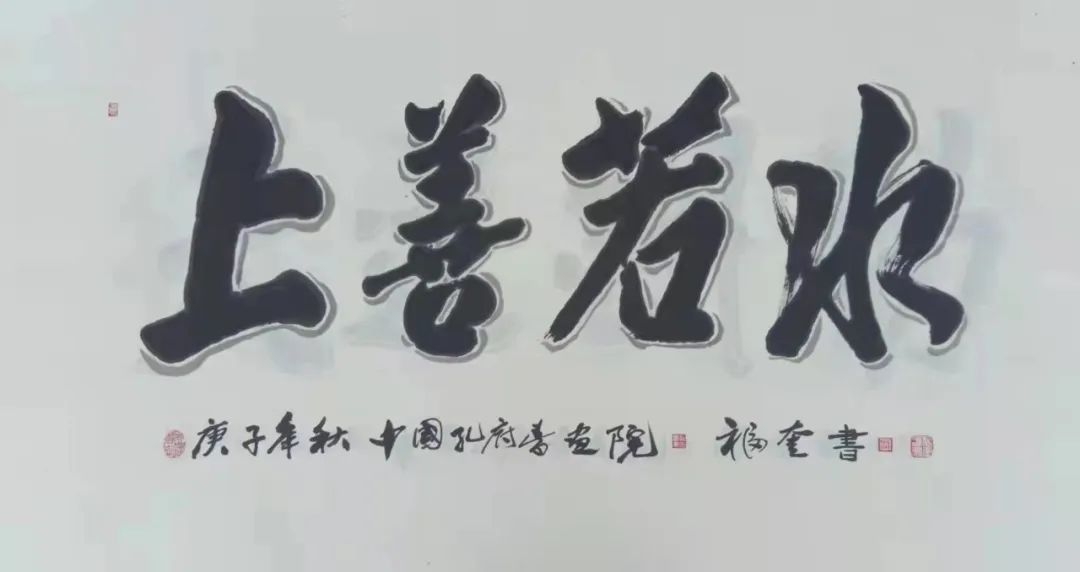 上善若水
庚子年秋 中國孔府書画院 福奎書